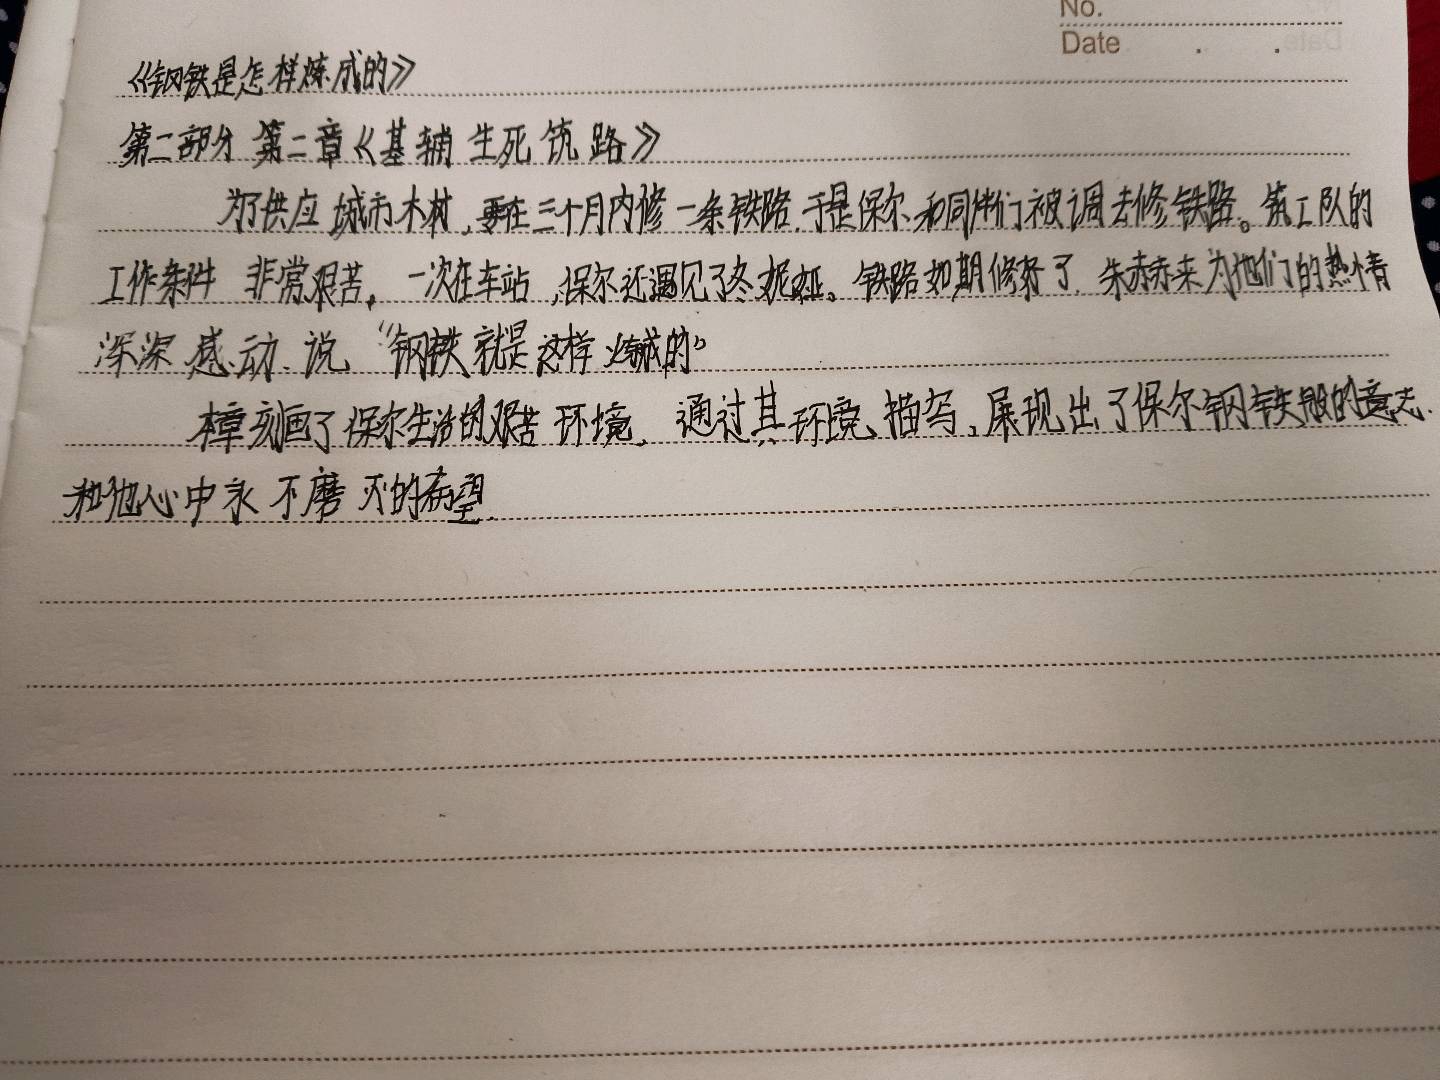 No.
Date . .
《钢铁是怎样炼成的》
第二部分 第二章《基辅 生死筑路》
为了供应城市木材,要在三个月内修一条铁路,于是保尔和同伴们被调去修铁路。筑工队的
工作条件 非常艰苦。一次在车站,保尔还遇见了冬妮娅。铁路如期修好了,朱赫来为他们的热情
深深感动、说 “钢铁就是这样炼成的”
本章刻画了保尔生活的艰苦环境,通过其环境描写,展现出了保尔钢铁般的意志
和他心中永不磨灭的希望.